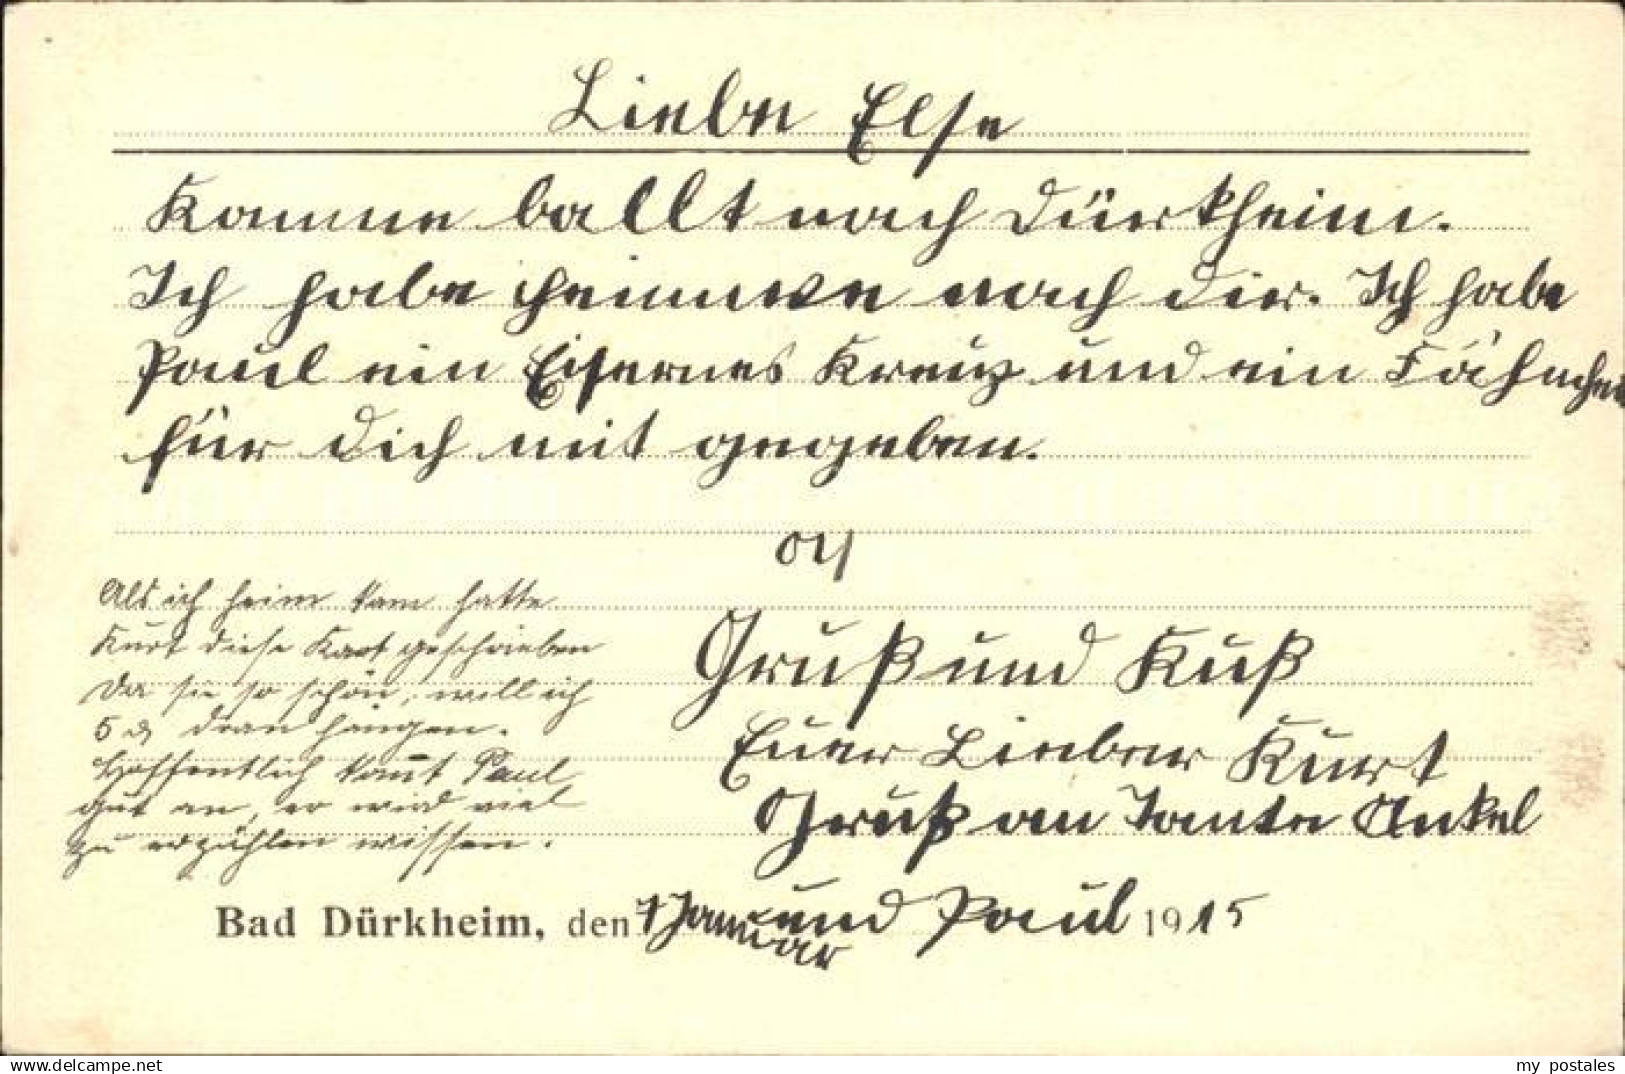 Liebe Else
Komme ballt nach Dürkheim.
Ich habe heimwe nach dir. Ich habe
Paul ein Eisernes Kreuz und ein Fähnchen
für Dich mit gegeben.
Als ich heim kam hatte
Kurt diese Kart geschrieben
Da sie so schön, will ich
5 ₰ dran hängen.
Hoffentlich kom̅t Paul
gut an, er wird viel
zu erzählen wissen.
Gruß und Kuß
Euer Lieber Kurt
Gruß an Tante Onkel
und Paul
Bad Dürkheim, den 1 Januar 1915
my_postales